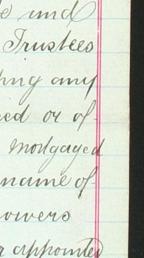 and
Trustees
ing any
ed or of
mortgaged
name of
powers
appointed